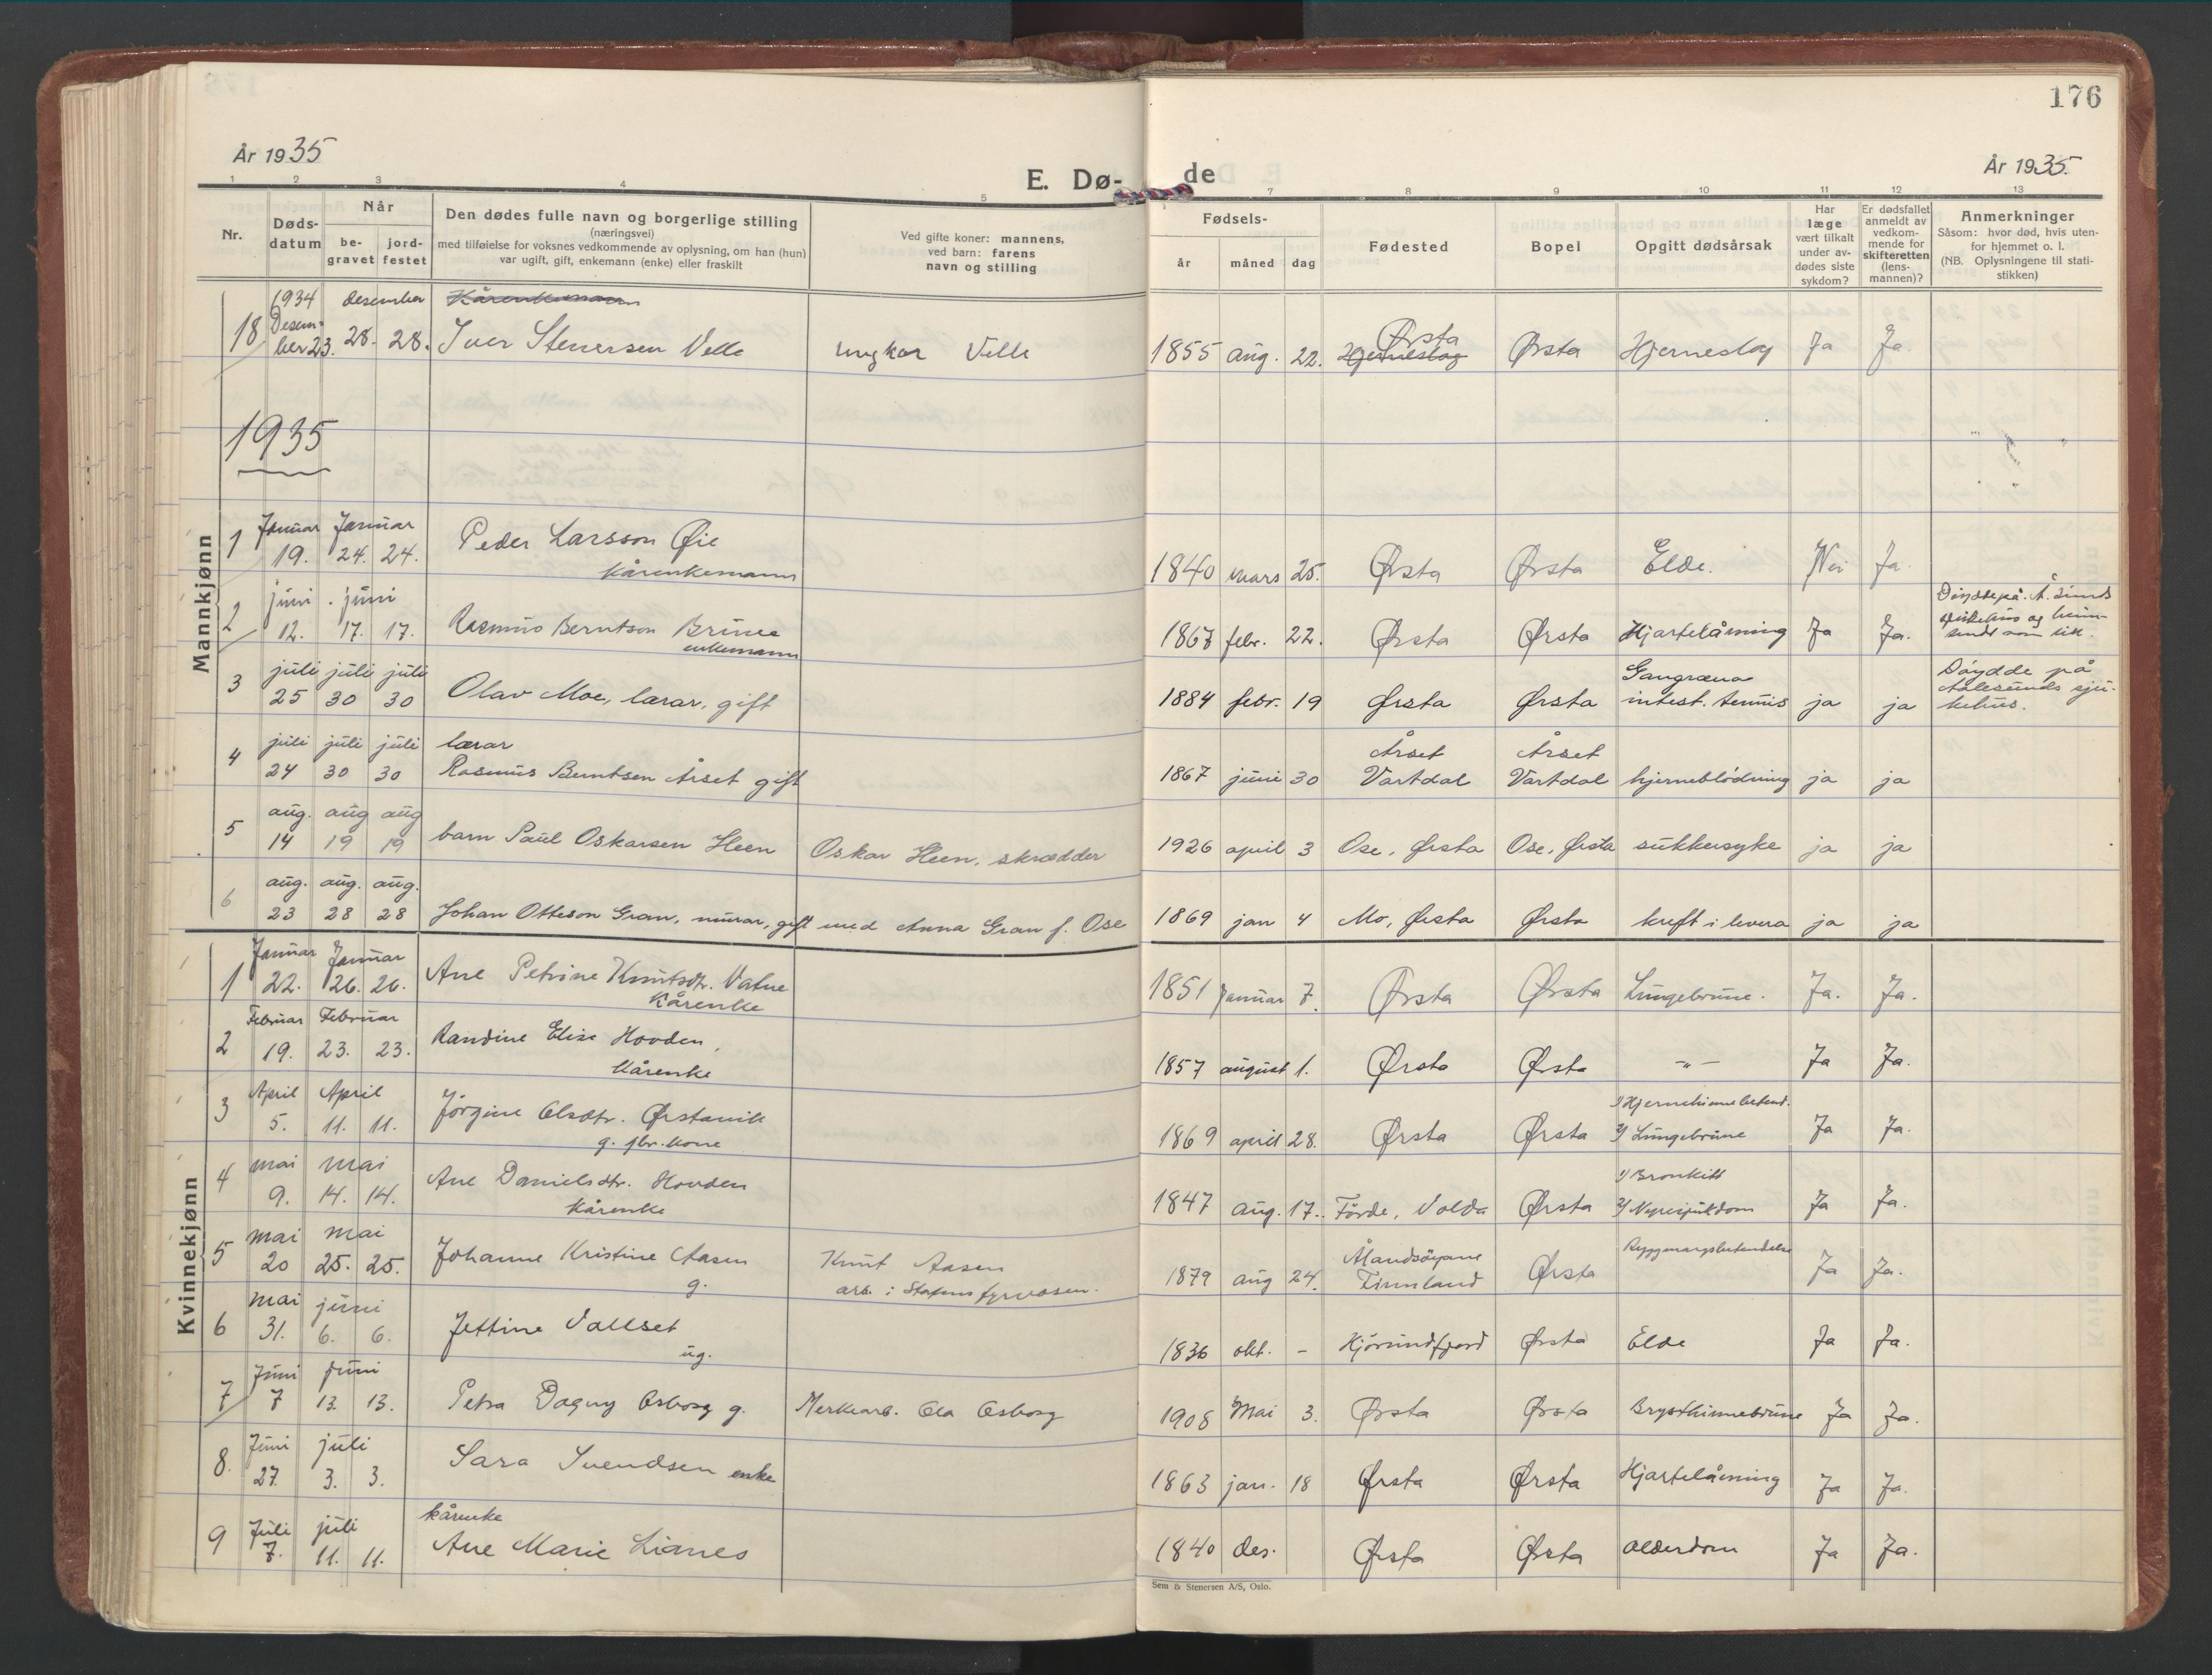 176
År 1935
E. Dø-
de
År 1935.
1 2 3 4 5 7 8 9 10 11 12 13
Nr.
Døds-
datum
Når
be-
gravet
jord-
festet
Den dødes fulle navn og borgerlige stilling
(næringsvei)
med tilføielse for voksnes vedkommende av oplysning, om han (hun)
var ugift, gift, enkemann (enke) eller fraskilt
Ved gifte koner: mannens,
ved barn: farens
navn og stilling
Fødsels-
år måned dag
Fødested
Bopel
Opgitt dødsårsak
Har
læge
vært tilkalt
under av-
dødes siste
sykdom?
Er dødsfallet
anmeldt av
vedkom-
mende for
skifteretten
(lens-
mannen)?
Anmerkninger
Såsom: hvor død, hvis uten-
for hjemmet o. l.
(NB. Oplysningene til stati-
stikken)
1934 desember Kårenkemann
18 Desem-
ber 23. 28. 28. Iver Stenersen Velle ungkar Velle 1855 aug. 22. Hjerneslag Ørsta Ørsta Hjerneslag Ja Ja.
1935
Mannkjønn
1 Januar Januar
19. 24. 24. Peder Larsson Øie
kårenkemann 1840 mars 25. Ørsta Ørsta Elde. Nei Ja.
2 juni juni
12. 17. 17. Rasmus Berntson Brune
enkemann 1867 febr. 22. Ørsta Ørsta Hjartelåming Ja Ja. Døydde på Å.sunds
sjukehus og heim-
sendt som lik.
3 juli juli juli
25 30 30 Olav Moe, lærar, gift 1884 febr. 19 Ørsta Ørsta Gangræna
intest. tennis ja ja Døydde på
Aalesunds sju-
kehus.
4 juli juli juli lærar
24 30 30 Rasmus Berntsen Årset gift 1867 juni 30 Årset
Vartdal Årset
Vartdal hjerneblødning ja ja
5 aug. aug aug
14 19 19 barn Paul Oskarsen Heen Oskar Heen, skrædder 1926 april 3 Ose, Ørsta Ose, Ørsta sukkersyke ja ja
6 aug. aug. aug.
23 28 28 Johan Otteson Gran, murar, gift med Anna Gran f. Ose 1869 jan 4 Mo, Ørsta Ørsta kreft i levera ja ja
Kvinnekjønn
1 Januar Januar
22. 26. 26. Ane Petrine Knutsdtr. Vatne
Kårenke 1851 Januar 7. Ørsta Ørsta Lungebrune. Ja. Ja.
2 Februar Februar
19. 23. 23. Randine Elise Hovden,
Kårenke 1857 august 1. Ørsta Ørsta -"- Ja Ja.
3 April April
5. 11. 11. Jørgine Olsdtr. Ørstavik
g. fbr.kone 1869 april 28. Ørsta Ørsta 1) Hjernehinnebetend.
2) Lungebrune Ja Ja.
4 mai mai
9. 14. 14. Ane Danielsdtr. Hovden
kårenke 1847 aug. 17. Førde, Volda Ørsta 1) Bronkitt
2) Nyresjukdom Ja Ja.
5 mai mai
20 25. 25. Johanne Kristine Aasen
g. Knut Aasen
arb. i Statens fyrvesen. 1879 aug 24. Ålandsøyane
Finnland Ørsta Ryggmargsbetendelse Ja Ja.
6 mai juni
31. 6. 6. Jettine Vallset
ug. 1836 okt. - Hjørundfjord Ørsta Elde Ja Ja.
7 Juni juni
7 13. 13. Petra Dagny Osborg g. Merkearb. Ola Osborg 1908 Mai 3. Ørsta Ørsta Brysthinnebrune Ja Ja.
8. Juni juli
27. 3. 3. Sara Svendsen enke 1863 jan. 18 Ørsta Ørsta Hjartelåming Ja Ja.
9 Juli juli kårenke
7. 11. 11. Ane Marie Lianes 1840 des. Ørsta Ørsta Alderdom Ja Ja.
Sem & Stenersen A/S, Oslo.